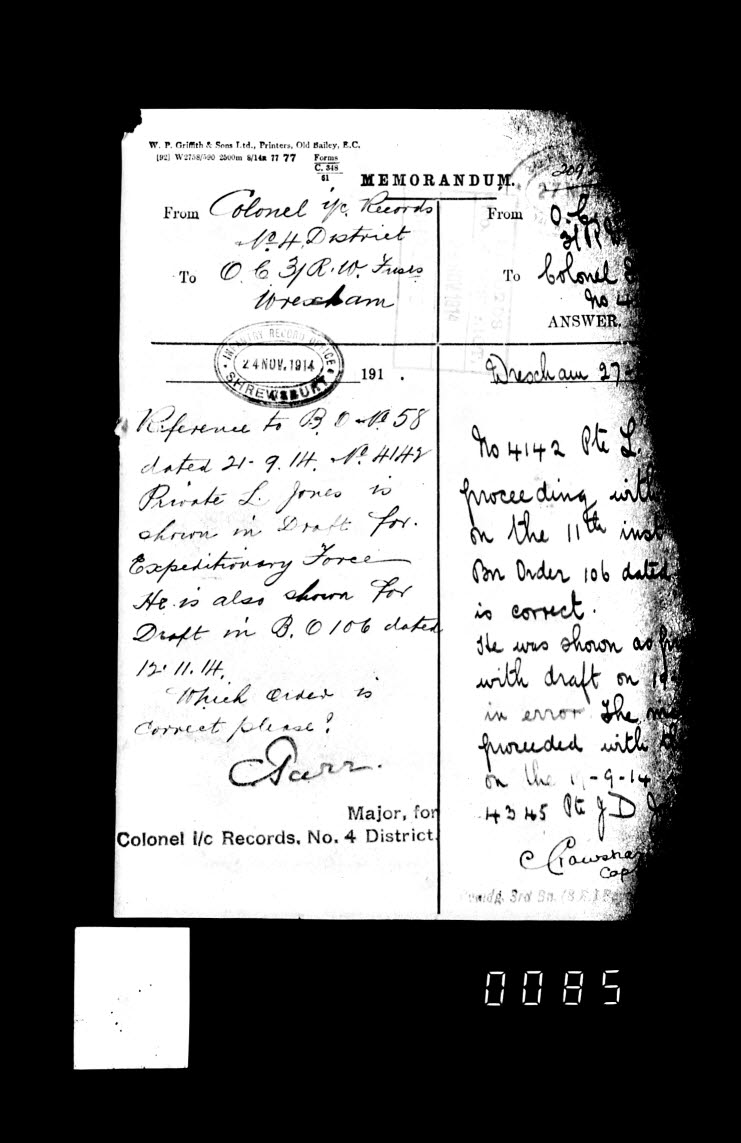 W. P. Griffith & Sons Ltd., Printers, Old Bailey, E.C.
[92] W2758/590 2500m 8/14R 77 77
Forms
C. 348
51
MEMORANDUM.
From Colonel i/c. Records
No 4 District
To O C 3/R. W. Fusrs
Wrexham
INFANTRY RECORD OFFICE
24 NOV. 1914
SHREWSBURY
191 .
Reference to B. O No 58
dated 21. 9. 14. No. 4142
Private L. Jones is
shown in Draft for.
Expeditionary Force
He is also shown for
Draft in B. O 106 dated
12. 11. 14.
Which Order is
correct please?
Major, for
Colonel i/c Records, No. 4 District.
From O. C.
3/R
To Colonel
No 4
ANSWER.
Wrexham 27
No 4142 Pte L.
proceeding with
on the 11th inst
Bn Order 106 dated
is correct.
He was shown as
with draft on
in error The
proceeded with
on the -9-14
4345 Pte J D
C
Cap
3rd Bn. (S.R.)
0085